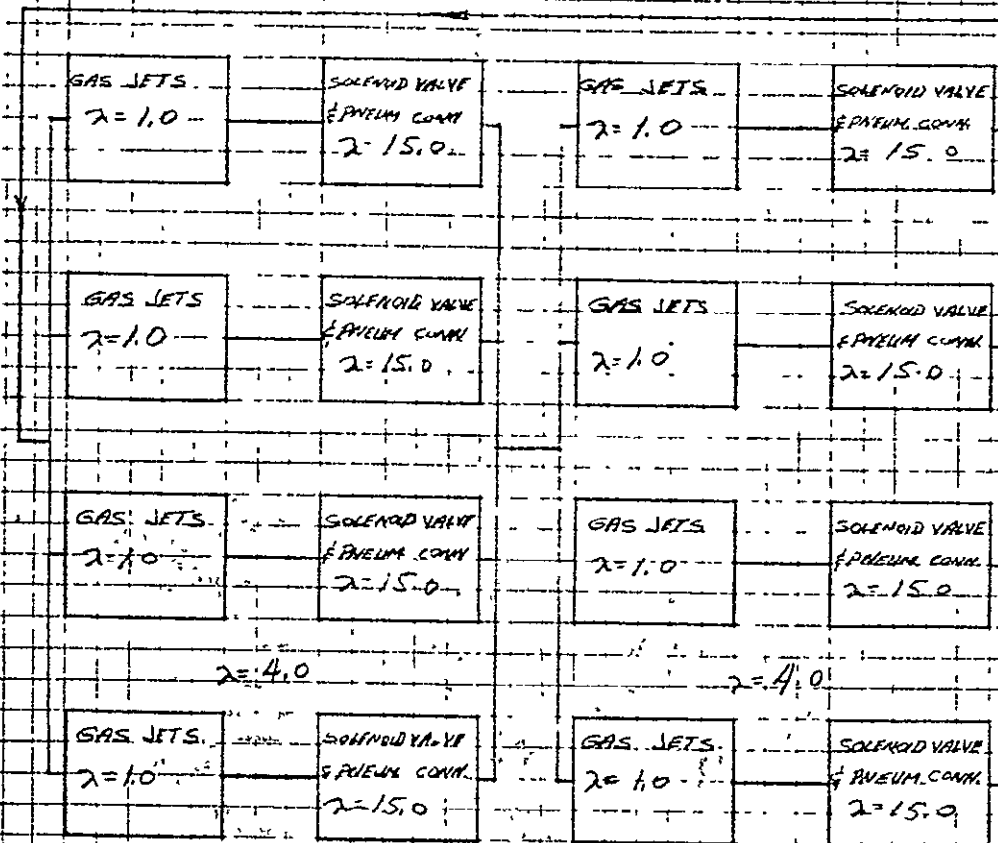 GAS JETS
λ = 1.0
SOLENOID VALVE
& PNEUM CONN
λ = 15.0
GAS JETS
λ = 1.0
SOLENOID VALVE
& PNEUM. CONN.
λ = 15.0
GAS JETS
λ = 1.0
SOLENOID VALVE
& PNEUM CONN
λ = 15.0
GAS JETS
λ = 1.0
SOLENOID VALVE
& PNEUM CONN.
λ = 15.0
GAS JETS
λ = 1.0
SOLENOID VALVE
& PNEUM CONN
λ = 15.0
GAS JETS
λ = 1.0
SOLENOID VALVE
& PNEUM. CONN.
λ = 15.0
λ = 4.0
λ = 4.0
GAS JETS.
λ = 1.0
SOLENOID VALVE
& PNEUM CONN.
λ = 15.0
GAS JETS.
λ = 1.0
SOLENOID VALVE
& PNEUM. CONN.
λ = 15.0